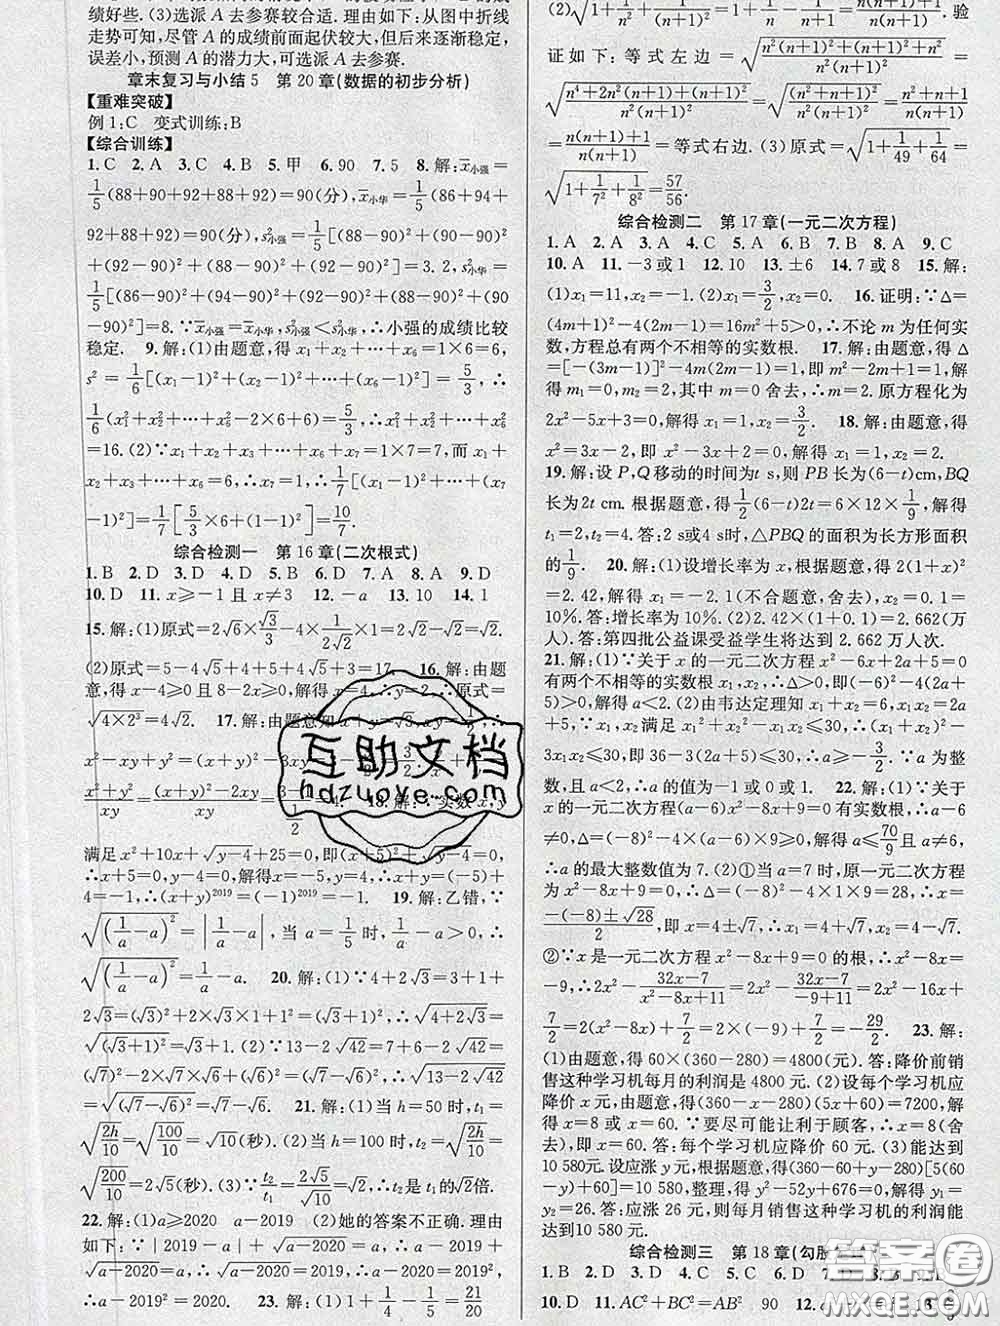 械. (3)选派 A 去参赛较合适. 理由如下:从图中折线
走势可知,尽管 A 的成绩前面起伏大,但后来逐渐稳定,
误差小,预测 A 的潜力大,可选派 A 去参赛.
章末复习与小结 5 第 20 章(数据的初步分析)
【重难突破】
例 1:C 变式训练:B
【综合训练】
1. C 2. A 3. C 4. B 5. 甲 6. 90 7. 5 8. 解:x̄小强=
1/5(88+90+92+88+92)=90(分),x̄小华=1/5(86+94+
94+88+92)=90(分),s²小强=1/5[(88-90)²+(90-90)²
+(92-90)²+(88-90)²+(92-90)²]=3.2,s²小华=
1/5[(86-90)²+(94-90)²+(92-90)²+(88-90)²+(90
-90)²]=8. ∵x̄小强=x̄小华,s²小强<s²小华,∴小强的成绩比较
稳定. 9. 解:(1)由题意,得 x₁+x₂+…+x₆=1×6=6,
s²=1/6[(x₁-1)²+(x₂-1)²+…+(x₆-1)²]=5/3,∴
1/6(x₁²+x₂²+…+x₆²-2×6+6)=5/3,∴x₁²+x₂²+…+x₆²
=16. (2)∵x₁+x₂+x₃+…+x₇=1×7=7,而 x₁+x₂
+x₃+…+x₆=6,∴x₇=1,∴1/7[(x₁-1)²+…+(x₇
-1)²]=1/7[5/3×6+(1-1)²]=10/7.
综合检测一 第 16 章(二次根式)
1. B 2. D 3. D 4. D 5. B 6. D 7. A 8. A 9. D
10. D 11. x≥-1 且 x≠3 12. -a 13. 10 14. 1
15. 解:(1)原式=2√6×√3/3-4×1/(2√2)×1=2√2-√2=√2.
(2)原式=5-4√5+4+5+4√5+3=17. 16. 解:由题
意,得 x-4≥0 且 8-2x≥0,解得 x=4,∴y=2,∴原式=
√(4×2³)=4√2. 17. 解:由题意知 x+y=√3,xy=1/2
满足 x²+10x+√(y-4)+25=0,即(x+5)²+√(y-4)=0,
∴x+5=0,y-4=0,解得 x=-5,y=4,∴x+y=(-5)+
4=-1,∴(x+y)²⁰¹⁹=(-1)²⁰¹⁹=-1. 19. 解:乙错,∵
√((1/a-a)²)=|1/a-a|,当 a=1/5时,1/a-a>0,∴
√((1/a-a)²)=1/a-a. 20. 解:(1)∵4+2√3=3+1+
2√3=(√3)²+1²+2√3=(√3+1)²,∴√(4+2√3)=
√((√3+1)²)=√3+1. (2)∵13-2√42=7+6-2√42=
(√7)²+(√6)²-2×√7×√6=(√7-√6)²,∴√(13-2√42)=
√((√7-√6)²)=√7-√6. 21. 解:(1)当 h=50 时,t₁=
√(2h/10)=√(100/10)=√10(秒). (2)当 h=100 时,t₂=√(2h/10)=
√(200/10)=2√5(秒). (3)∵t₂/t₁=2√5/√10=√2,∴t₂是 t₁的√2倍.
22. 解:(1)a≥2020 a-2019 (2)她的答案不正确. 理由
如下:∵|2019-a|+√(a-2020)=a,∴a-2019+
√(a-2020)=a,∴√(a-2020)=2019,∴a-2020=2019²,
∴a-2019²=2020. 23. 解:(1)√(1+1/4²+1/5²)=1+1/20=21/20
(2)√(1+1/n²+1/(n+1)²)=1+1/n-1/(n+1)=1+1/(n(n+1)). 验
证如下:等式左边=√((n²(n+1)²+(n+1)²+n²)/(n²(n+1)²))=
√((n⁴+2n²(n+1)+(n+1)²)/(n²(n+1)²))=√((n²+n+1)²/(n²(n+1)²))=
(n(n+1)+1)/(n(n+1))=1+1/(n(n+1))=等式右边. (3)原式=√(1+1/49+1/64)
=√(1+1/7²+1/8²)=57/56.
综合检测二 第 17 章(一元二次方程)
1. A 2. A 3. A 4. C 5. C 6. B 7. B 8. A 9. C
10. A 11. -3或1 12. 10 13. ±6 14. 7 或 8 15. 解:
(1)x₁=11,x₂=-1. (2)x₁=3/2,x₂=0. 16. 证明:∵Δ=
(4m+1)²-4(2m-1)=16m²+5>0,∴不论 m 为任何实
数,方程总有两个不相等的实数根. 17. 解:由题意,得 Δ
=[-(3m-1)]²-4m(2m-1)=1,即 m²-2m+1=1,解
得 m₁=0,m₂=2,其中 m=0 舍去,∴m=2. 原方程化为
2x²-5x+3=0,解得 x₁=1,x₂=3/2. 18. 解:由题意,得
6x²-3x=3x²-3,即 x²-3x+2=0,解得 x₁=1,x₂=2.
19. 解:设 P,Q 移动的时间为t s,则 PB 长为(6-t)cm,BQ
长为2t cm. 根据题意,得1/2(6-t)2t=6×12×1/9,解得
t₁=2,t₂=4. 答:2 s或4 s时,△PBQ 的面积为长方形面积
的1/9. 20. 解:(1)设增长率为 x,根据题意,得 2(1+x)²
=2.42,解得 x₁=-2.1(不合题意,舍去),x₂=0.1=
10%. 答:增长率为 10%. (2)2.42(1+0.1)=2.662(万
人). 答:第四批公益课受益学生将达到 2.662 万人次.
21. 解:(1)∵关于 x 的一元二次方程 x²-6x+2a+5=0
有两个不相等的实数根 x₁,x₂,∴Δ>0,即(-6)²-4(2a+5)>0,
解得 a<2. (2)由韦达定理知 x₁+x₂=6,x₁x₂=2a
+5,∵x₁,x₂ 满足 x₁²+x₂²-x₁x₂≤30,∴(x₁+x₂)²-
3x₁x₂≤30,即 36-3(2a+5)≤30,∴a≥-3/2. ∵a 为整
数,且 a<2,∴a 的值为-1 或 0 或 1. 22. 解:(1)∵关于
x 的一元二次方程(a-6)x²-8x+9=0 有实数根,∴a-6
≠0,Δ=(-8)²-4×(a-6)×9≥0,解得 a≤70/9且 a≠6,
∴a 的最大整数值为 7. (2)①当 a=7 时,原一元二次方程
为 x²-8x+9=0,∴Δ=(-8)²-4×1×9=28,∴x=
(-(-8)±√28)/2,即 x=4±√7,∴x₁=4+√7,x₂=4-√7.
②∵x 是一元二次方程 x²-8x+9=0 的根,∴x²-8x=
-9,∴2x²-(32x-7)/(x²-8x+11)=2x²-(32x-7)/(-9+11)=2x²-16x+
7/2=2(x²-8x)+7/2=2×(-9)+7/2=-29/2. 23. 解:
(1)由题意,得 60×(360-280)=4800(元). 答:降价前销
售这种学习机每月的利润是 4800 元. (2)设每个学习机应
降价 x 元,由题意,得(360-x-280)(5x+60)=7200,解得
x=8 或 x=60. ∵要尽可能让利于顾客,∴x=8(舍
去),即 x=60. 答:每个学习机应降价 60 元. (3)能达到
10 580元. 设应涨 y 元,根据题意,得(360-60+y-280)[5(60
-y)+60]=10 580,整理,得 y²-52y+676=0,解得 y₁=
y₂=26. 答:应涨 26 元,则每月销售这种学习机的利润能
达到10 580 元.
综合检测三 第 18 章(勾股定理)
1. B 2. C 3. C 4. D 5. B 6. D 7. D
10. D 11. AC²+BC²=AB² 90
互助文档
hdzuoye.com
答案圈